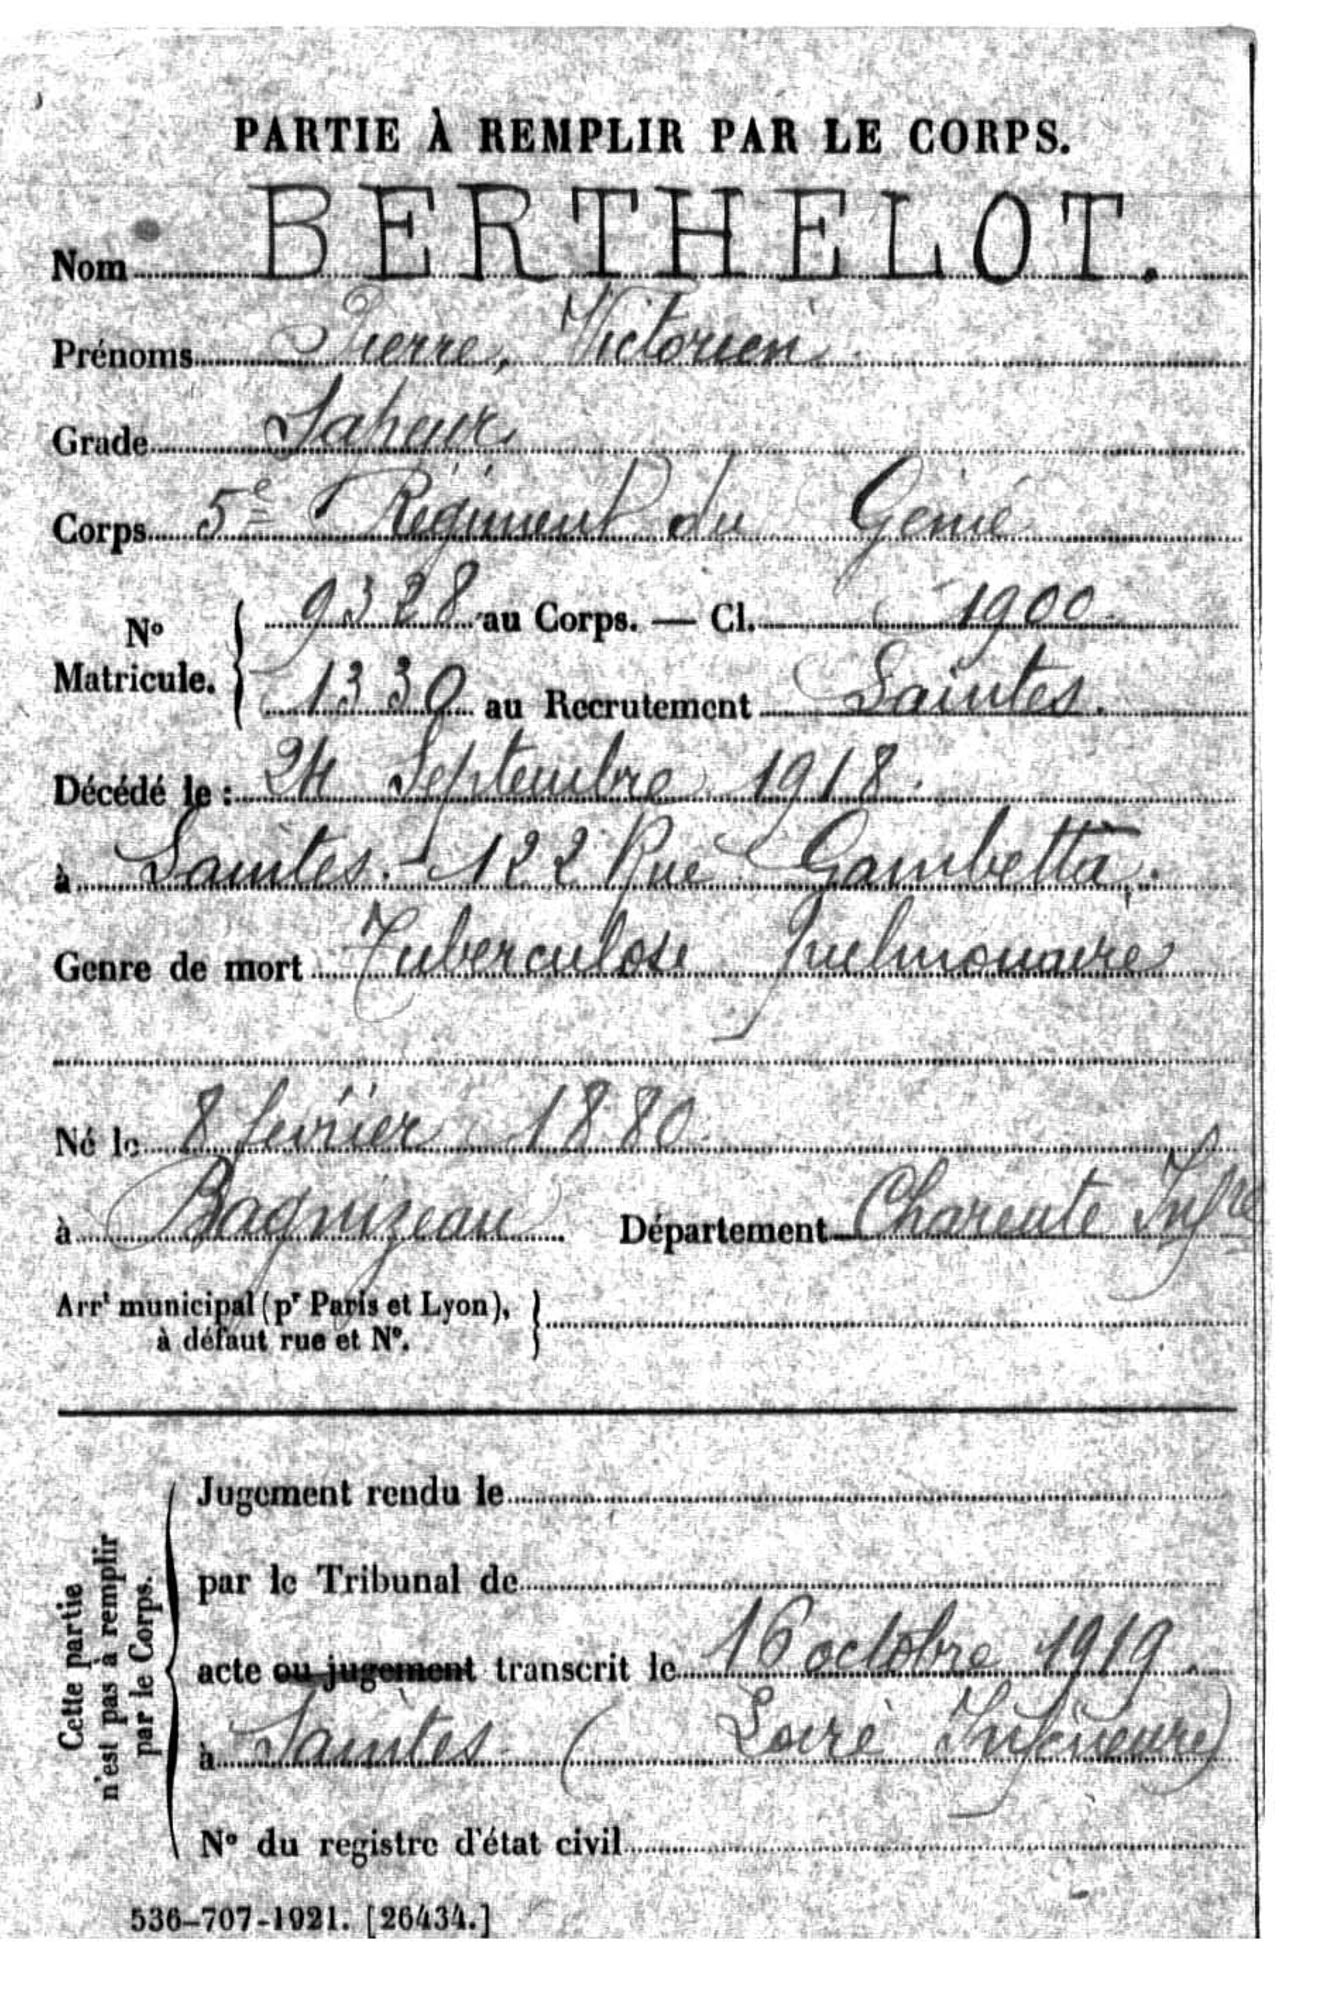 PARTIE À REMPLIR PAR LE CORPS.
Nom BERTHELOT.
Prénoms Pierre, Victorien
Grade Sapeur
Corps 5e Régiment du Génie
No Matricule. 9328 au Corps. — Cl. 1900
1330 au Recrutement Saintes.
Décédé le : 24 Septembre 1918.
à Saintes. - 122 Rue Gambetta.
Genre de mort Tuberculose pulmonaire
Né le 8 février 1880.
à Bagnizeau Département Charente Infre
Arrt municipal (pr Paris et Lyon),
à défaut rue et No.
Cette partie
n'est pas à remplir
par le Corps.
Jugement rendu le
par le Tribunal de
acte ou jugement transcrit le 16 octobre 1919.
à Saintes (Loire Inférieure)
No du registre d'état civil
536-707-1921. [26434.]